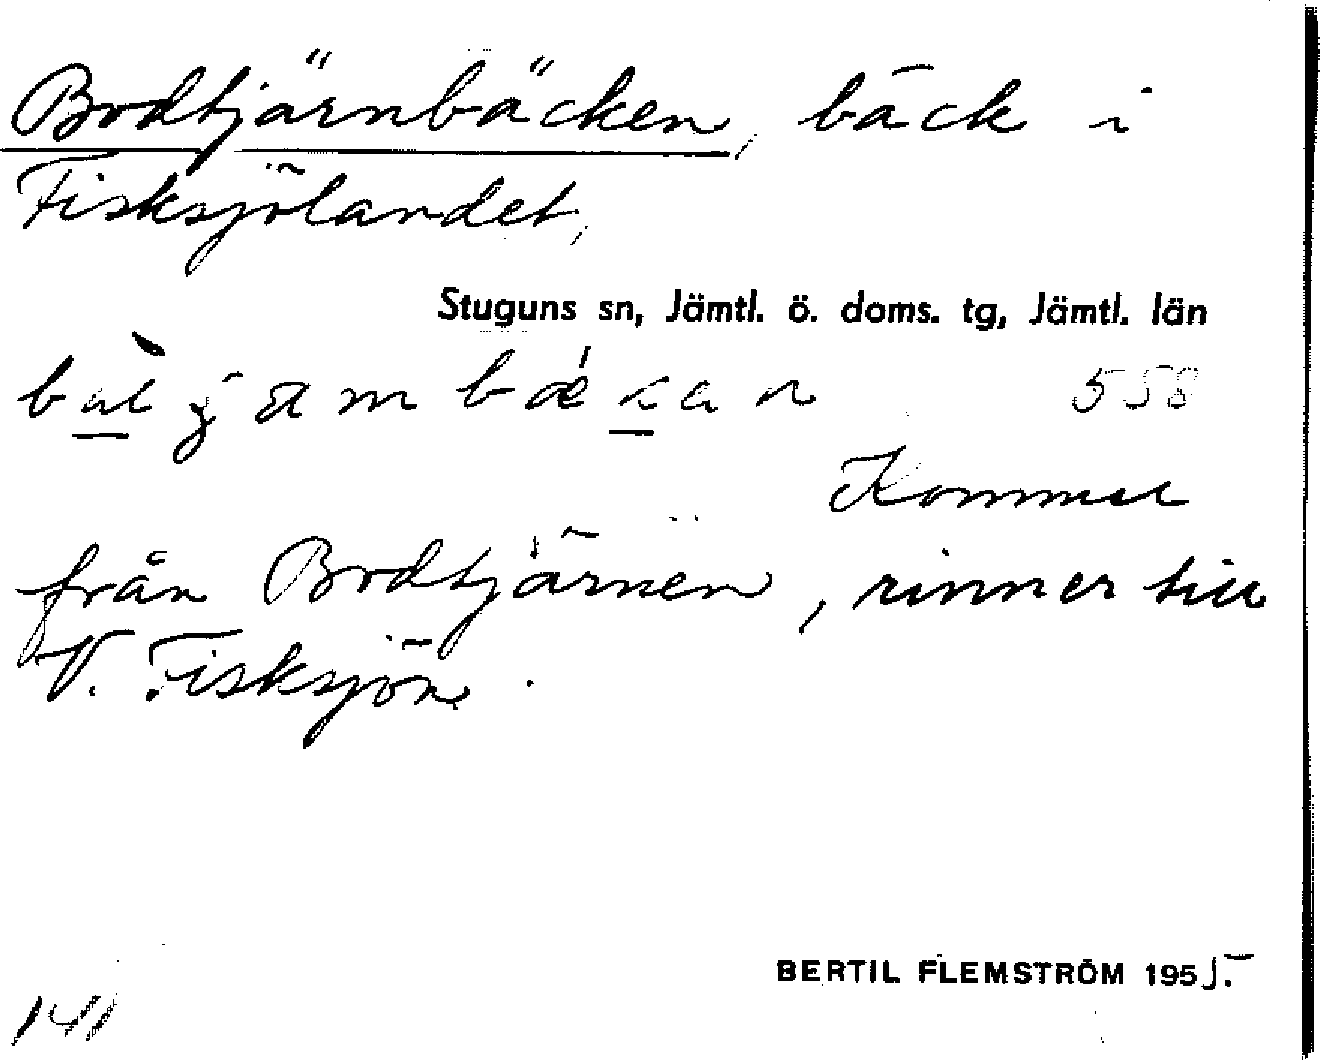 Bodtjärnbäcken, bäck i
Fisksjölandet,
Stuguns sn, Jämtl. ö. doms. tg, Jämtl. län
558
Kommer
från Bodtjärnen, rinner till
V. Fisksjön.
BERTIL FLEMSTRÖM 1955.
141